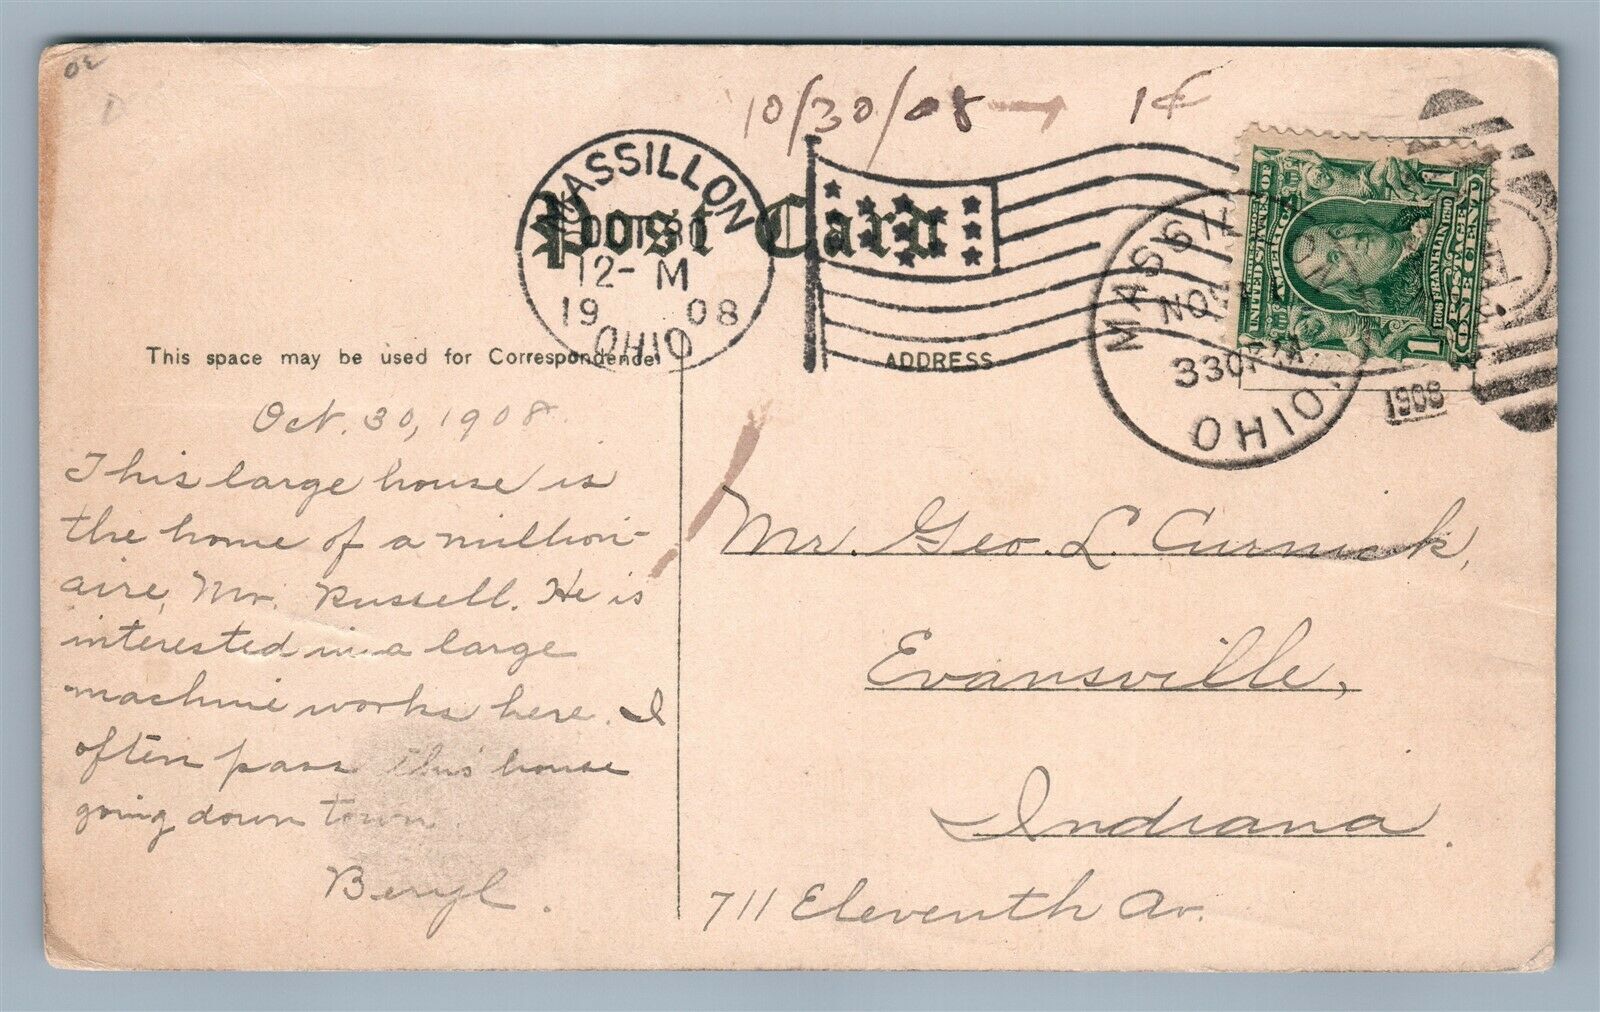 10/30/08 → 1¢
MASSILLON
OCT 30
12-M
19 08
OHIO
Post Card
This space may be used for Correspondence
ADDRESS
MASSILLON
NOV
330PM
OHIO
1908
UNITED STATES OF AMERICA
FRANKLIN
POSTAGE
ONE CENT
1 1
Oct. 30, 1908.
This large house is
the home of a million-
aire, Mr. Russell. He is
interested in a large
machine works here. I
often pass this house
going down town.
Beryl.
Mr. Geo. L. Curnick,
Evansville,
Indiana.
711 Eleventh Av.